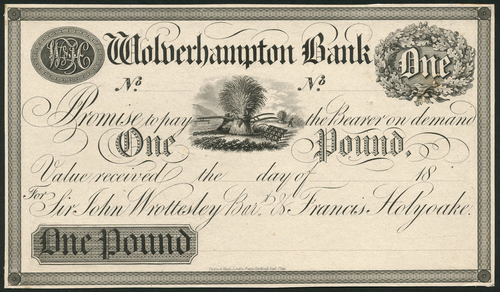 W&H
Wolverhampton Bank
One
No. No.
I Promise to pay the Bearer on demand
One Pound.
Value received the day of 18
For Sir John Wrottesley Bart. & Francis Holyoake.
One Pound